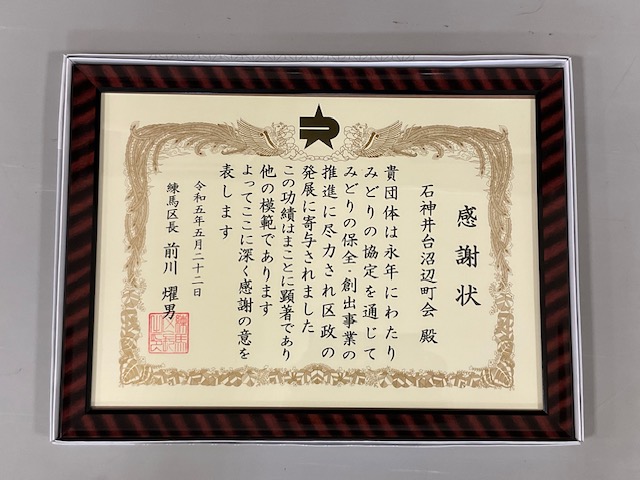 感謝状
石神井台沼辺町会 殿
貴団体は永年にわたり
みどりの協定を通じて
みどりの保全・創出事業の
推進に尽力され区政の
発展に寄与されました
この功績はまことに顕著であり
他の模範であります
よってここに深く感謝の意を
表します
令和五年五月二十二日
練馬区長 前川 燿男